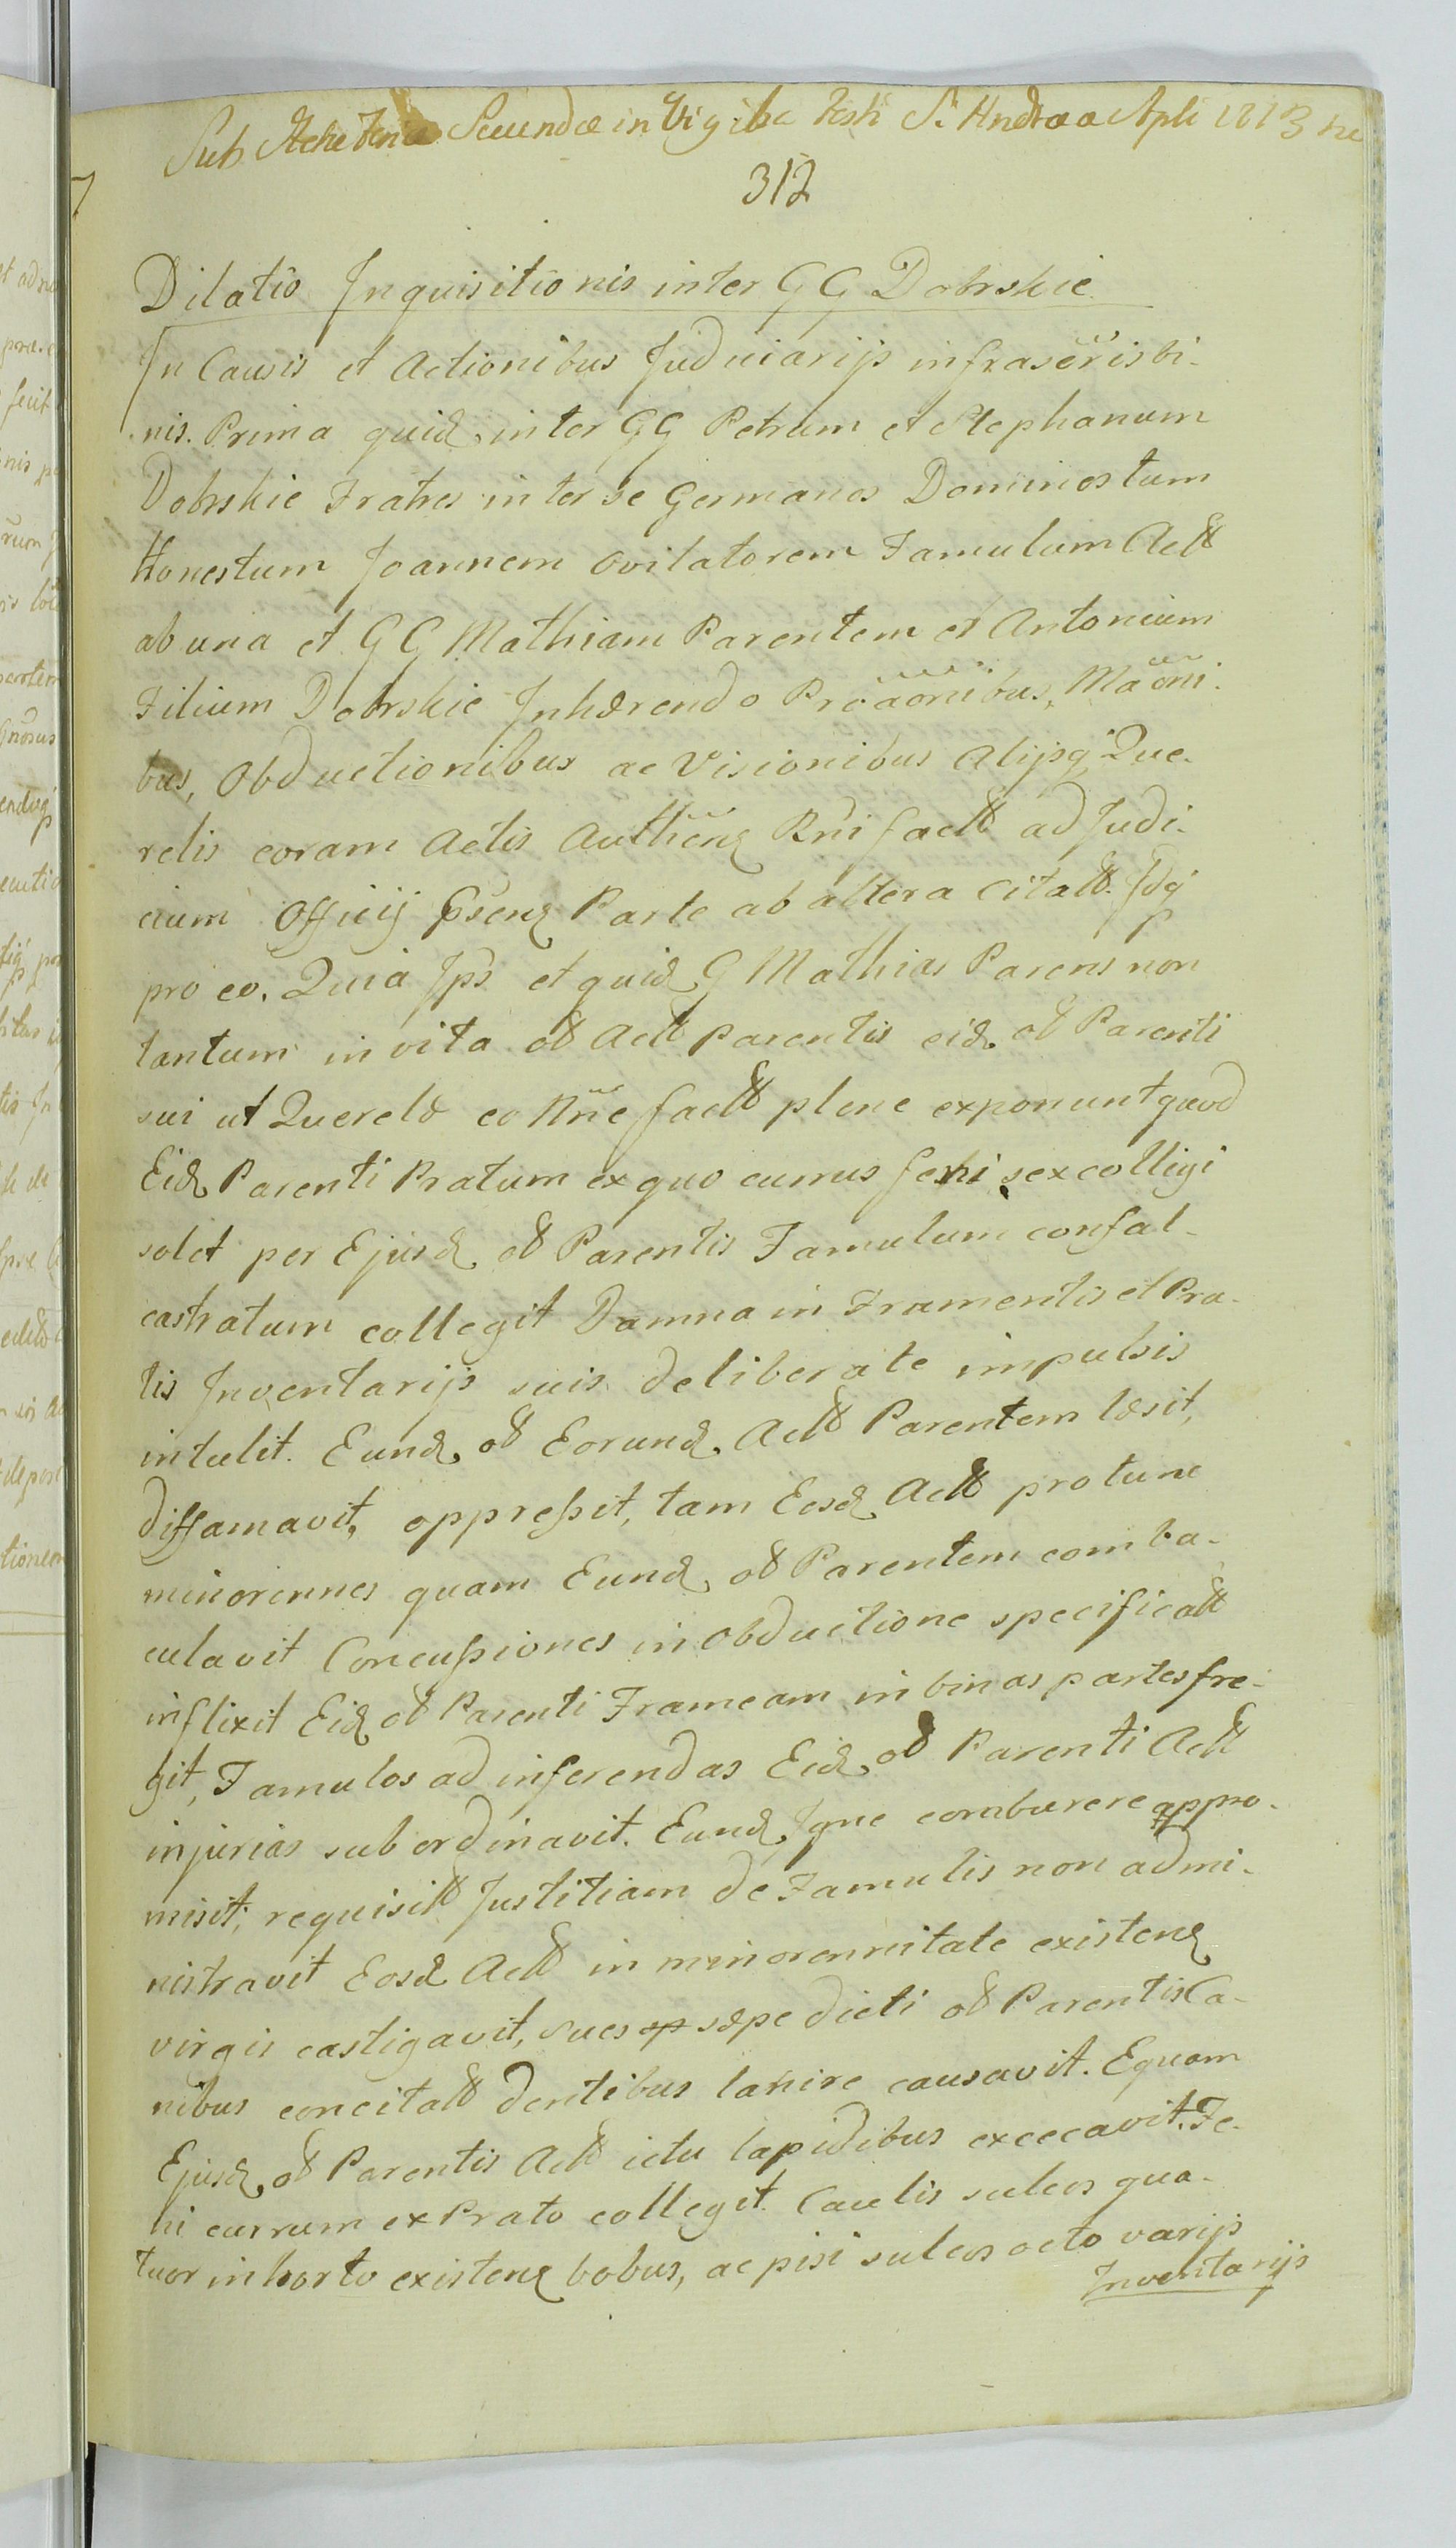 Secundæ in Vigilia Festi Sti Andræa Apli
312
Dilatio Inquisitionis inter GG Dobrskie
In Causis et Actionibus Judiciarijs infrascr̃is bi-
nis. Prima quid. inter GG Petrum et Stephanum
Dobrskie Fratres inter se Germanos Dominos tum
Honestum Joannem ovilatorem Famulum Act͠
ab una et GG Mathiam Parentem et Antonium
Filium Dobrskie Inhærendo Pro͠aonibus, Ma͠oni-
bus, Obductionibus ac Visionibus Alijsq Que-
relis coram Actis Authen͠ R͠ni fact͠ ad Judi-
cium Officij P͠sen͠ Parte ab altera Citat͠. Idq
pro eo. Quia Ips͠i et quid G Mathias Parens non
tantum in vita o͠d Act͠ Parentis eid. o͠d Parenti
sui ut Querelæ eo N͠ne fact͠ plene exponunt quod
Eid. Parenti Pratum ex quo currus feni sex colligi
solet per Ejusd. o͠d Parentis Famulum confal-
castratum collegit Damna in Frumentis et Pra-
tis Inventarijs suis deliberate impulsis
intulit. Eund. o͠d Eorund. Act͠ Parentem læsit,
diffamavit, oppressit, tam Eosd. Act͠ pro tunc
minorennes quam Eund. o͠d Parentem com ba-
culavit Concussiones in Obductione specificat͠
inflixit Eid. o͠d Parenti Frameam in binas partes fre-
git, Famulos ad inferendas Eid. o͠d Parenti Act͠
injurias subordinavit. Eund. Igne comburere appro-
misit; requisit͠ Justitiam de Famulis non admi-
nistravit Eosd. Act͠ in minorennitate existen͠
virgis castigavit, sues sæpe dicti o͠d Parentis Ca-
nibus concitat͠ dentibus lanire causavit. Equam
Ejusd. o͠d Parentis Act͠ ictu lapidibus excecavit. Fe-
ni currum ex Prato collegit. Caulis sulcos qua-
tuor in horto existen͠ bobus, ac pisi sulcos octo varijs
Inventarijs